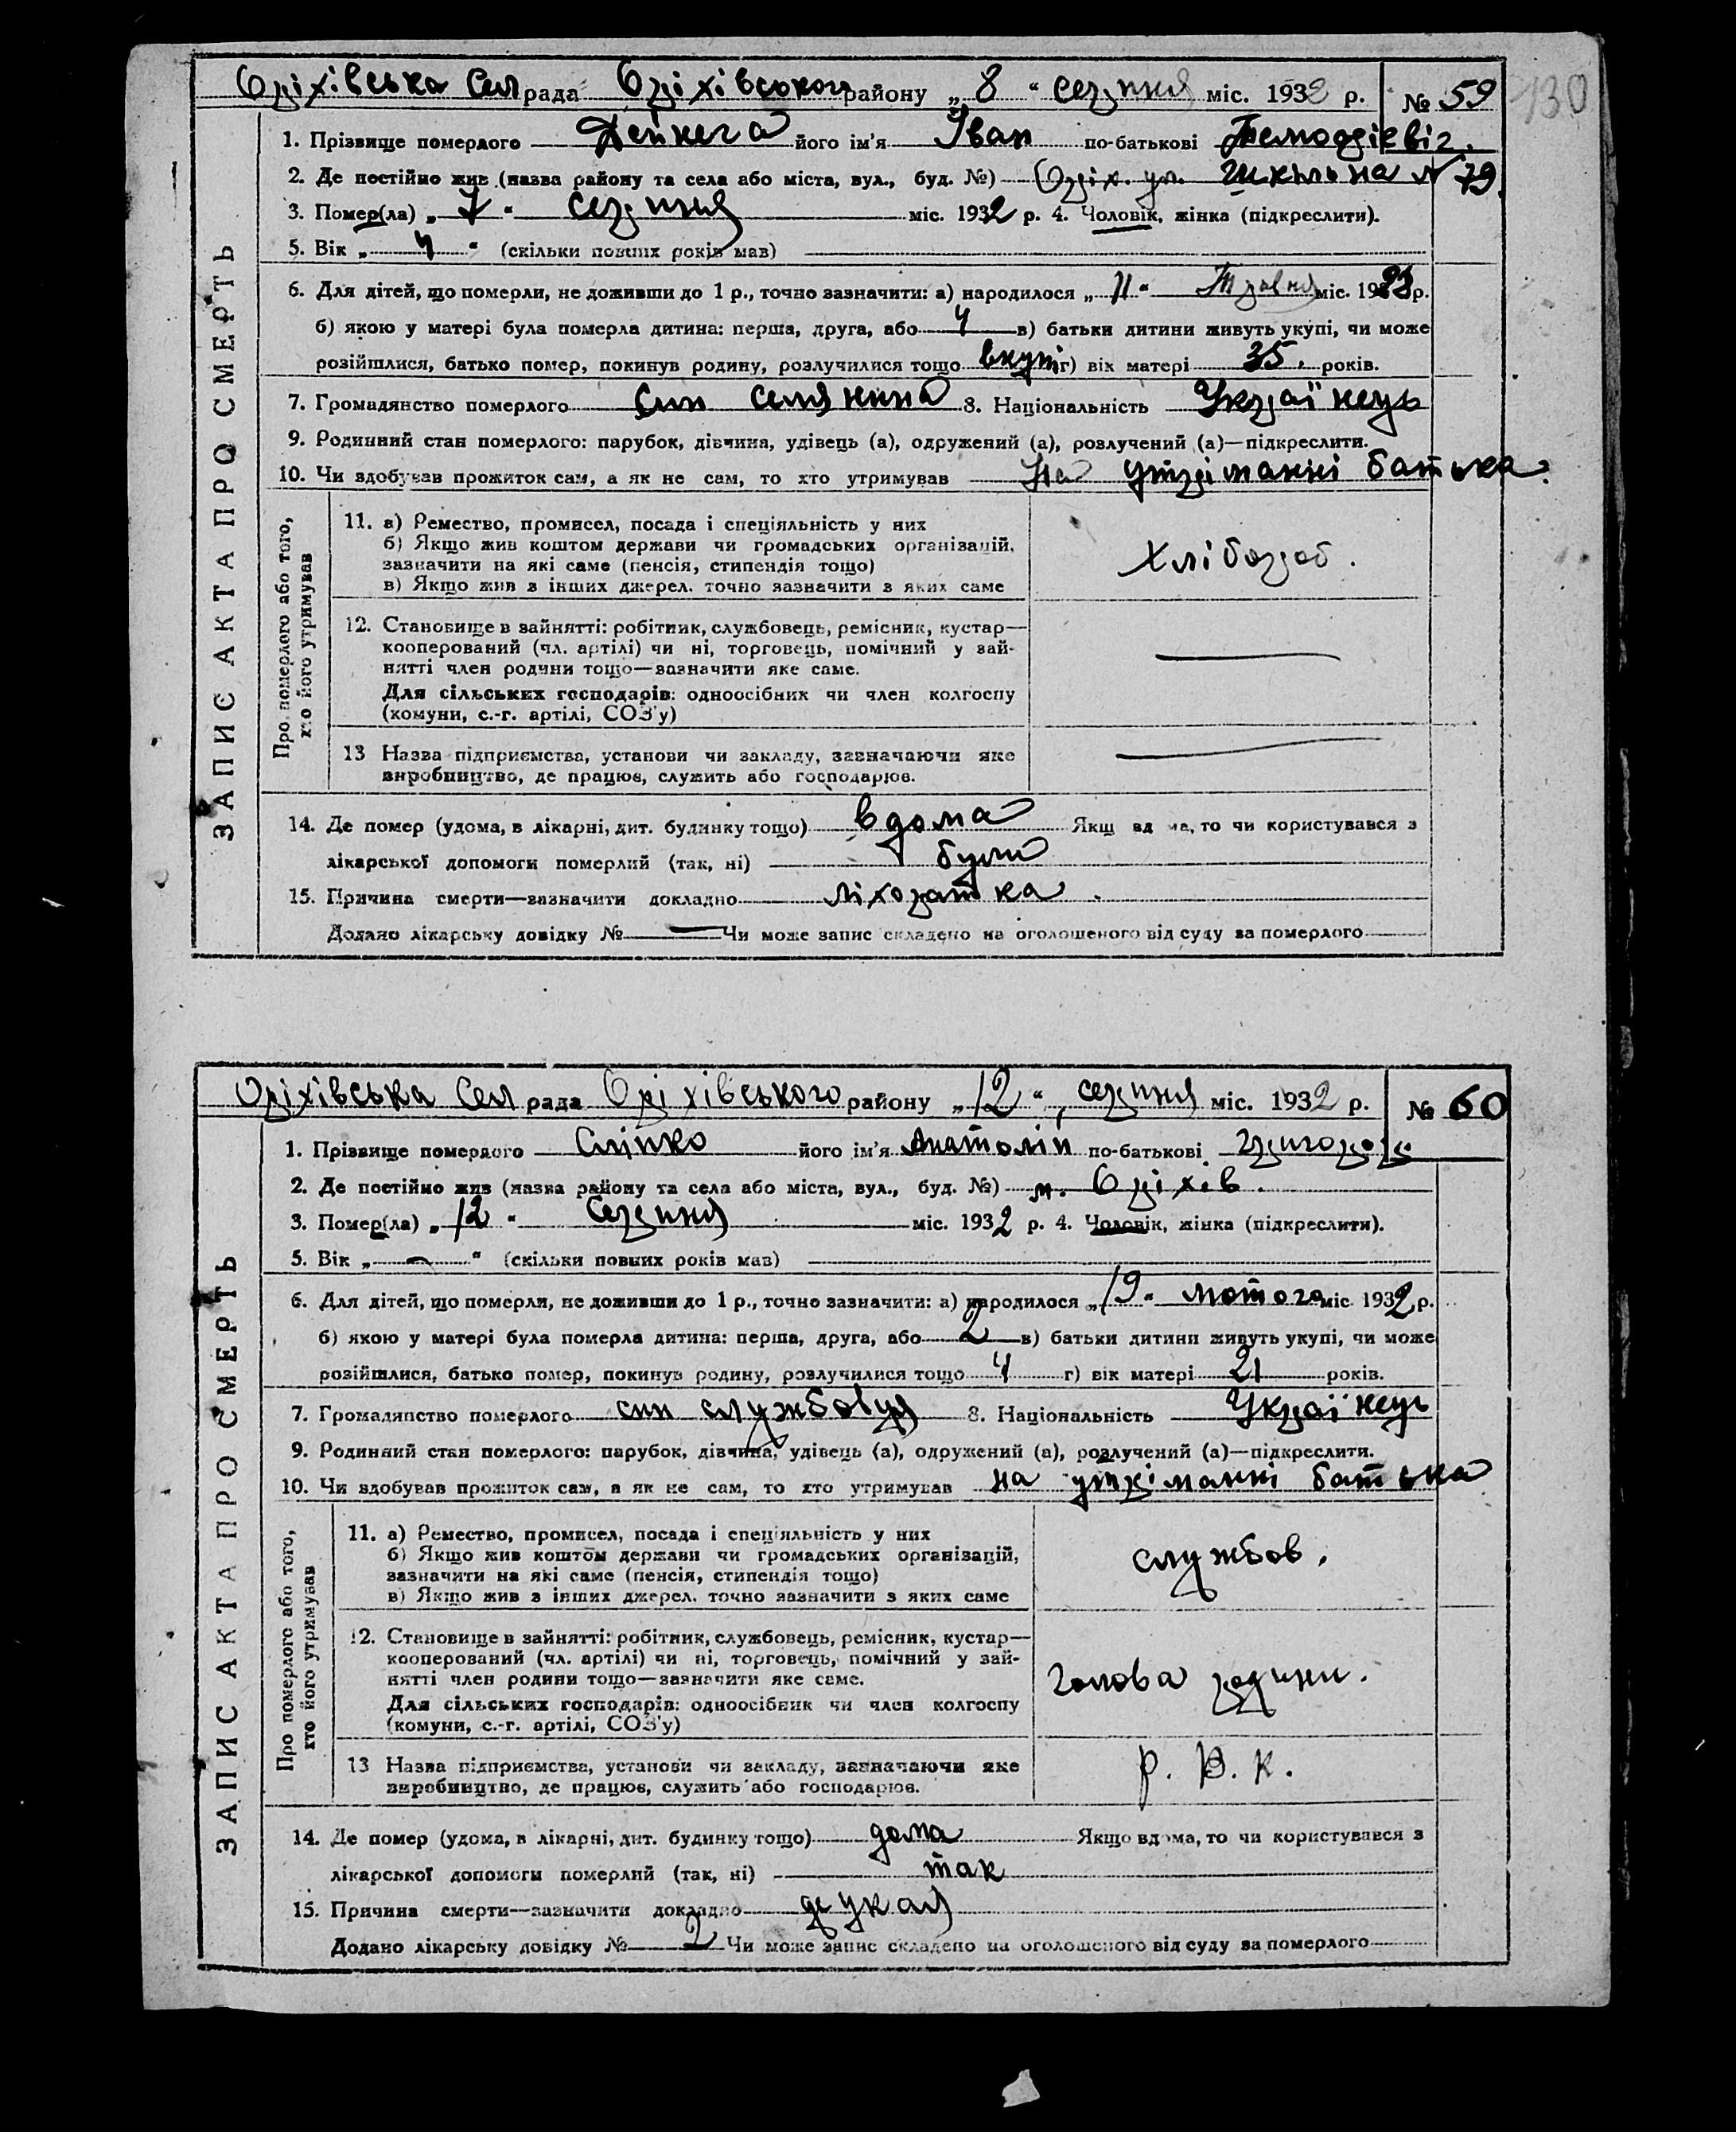 130
Оріхівська Сел рада Оріхівського району „ 8 “ серпня міс. 1932 р. № 59
ЗАПИС АКТА ПРО СМЕРТЬ
1. Прізвище померлого Дейнега його ім'я Іван по-батькові
2. Де постійно жив (назва району та села або міста, вул., буд. №) Оріх. ул. Шкільна № 79.
3. Помер(ла) „ 7 “ серпня міс. 1932 р. 4. Чоловік, жінка (підкреслити).
5. Вік „ 4 “ (скільки повних років мав)
6. Для дітей, що померли, не доживши до 1 р., точно зазначити: а) народилося „ 11 “ Травня міс. 19 р.
б) якою у матері була померла дитина: перша, друга, або 4 в) батьки дитини живуть укупі, чи може
розійшлися, батько помер, покинув родину, розлучилися тощо вкупі г) вік матері 35. років.
7. Громадянство померлого Син селянина 8. Національність Українець
9. Родинний стан померлого: парубок, дівчина, удівець (а), одружений (а), розлучений (а)—підкреслити.
10. Чи здобував прожиток сам, а як не сам, то хто утримував На утріманні батька.
Про померлого або того,
хто його утримував
11. а) Ремество, промисел, посада і спеціяльність у них
б) Якщо жив коштом держави чи громадських організацій,
зазначити на які саме (пенсія, стипендія тощо)
в) Якщо жив з інших джерел. точно зазначити з яких саме
Хлібороб.
12. Становище в зайнятті: робітник, службовець, ремісник, кустар—
кооперований (чл. артілі) чи ні, торговець, помічний у зай-
нятті член родини тощо—зазначити яке саме.
Для сільських господарів: одноосібник чи член колгоспу
(комуни, с.-г. артілі, СОЗ'у)
13 Назва підприємства, установи чи закладу, зазначаючи яке
виробництво, де працює, служить або господарює.
14. Де помер (удома, в лікарні, дит. будинку тощо) вдома Якщ вд ма, то чи користувався з
лікарської допомоги померлий (так, ні)
15. Причина смерти—зазначити докладно ліхоратка .
Додано лікарську довідку № — Чи може запис складено на оголошеного від суду за померлого
Оріхівська Сел рада Оріхівського району „ 12 “ серпня міс. 1932 р. № 60
ЗАПИС АКТА ПРО СМЕРТЬ
1. Прізвище померлого Сліпко його ім'я Анатолій по-батькові
2. Де постійно жив (назва району та села або міста, вул., буд. №) м. Оріхів.
3. Помер(ла) „ 12 “ Серпня міс. 1932 р. 4. Чоловік, жінка (підкреслити).
5. Вік „ — “ (скільки повних років мав)
6. Для дітей, що померли, не доживши до 1 р., точно зазначити: а) народилося „ 19 “ лютого міс. 1932 р.
б) якою у матері була померла дитина: перша, друга, або 2 в) батьки дитини живуть укупі, чи може
розійшлися, батько помер, покинув родину, розлучилися тощо ч г) вік матері 21 років.
7. Громадянство померлого син службовця 8. Національність Українець
9. Родинний стан померлого: парубок, дівчина, удівець (а), одружений (а), розлучений (а)—підкреслити.
10. Чи здобував прожиток сам, а як не сам, то хто утримував на утріманні батька
Про померлого або того,
хто його утримував
11. а) Ремество, промисел, посада і спеціяльність у них
б) Якщо жив коштом держави чи громадських організацій,
зазначити на які саме (пенсія, стипендія тощо)
в) Якщо жив з інших джерел. точно зазначити з яких саме
службов.
12. Становище в зайнятті: робітник, службовець, ремісник, кустар—
кооперований (чл. артілі) чи ні, торговець, помічний у зай-
нятті член родини тощо—зазначити яке саме.
Для сільських господарів: одноосібник чи член колгоспу
(комуни, с.-г. артілі, СОЗ'у)
голова родини.
13 Назва підприємства, установи чи закладу, зазначаючи яке
виробництво, де працює, служить або господарює.
Р. В. К.
14. Де помер (удома, в лікарні, дит. будинку тощо) дома Якщо вдома, то чи користувався з
лікарської допомоги померлий (так, ні) так
15. Причина смерти—зазначити докладно
Додано лікарську довідку № 2 Чи може запис складено на оголошеного від суду за померлого